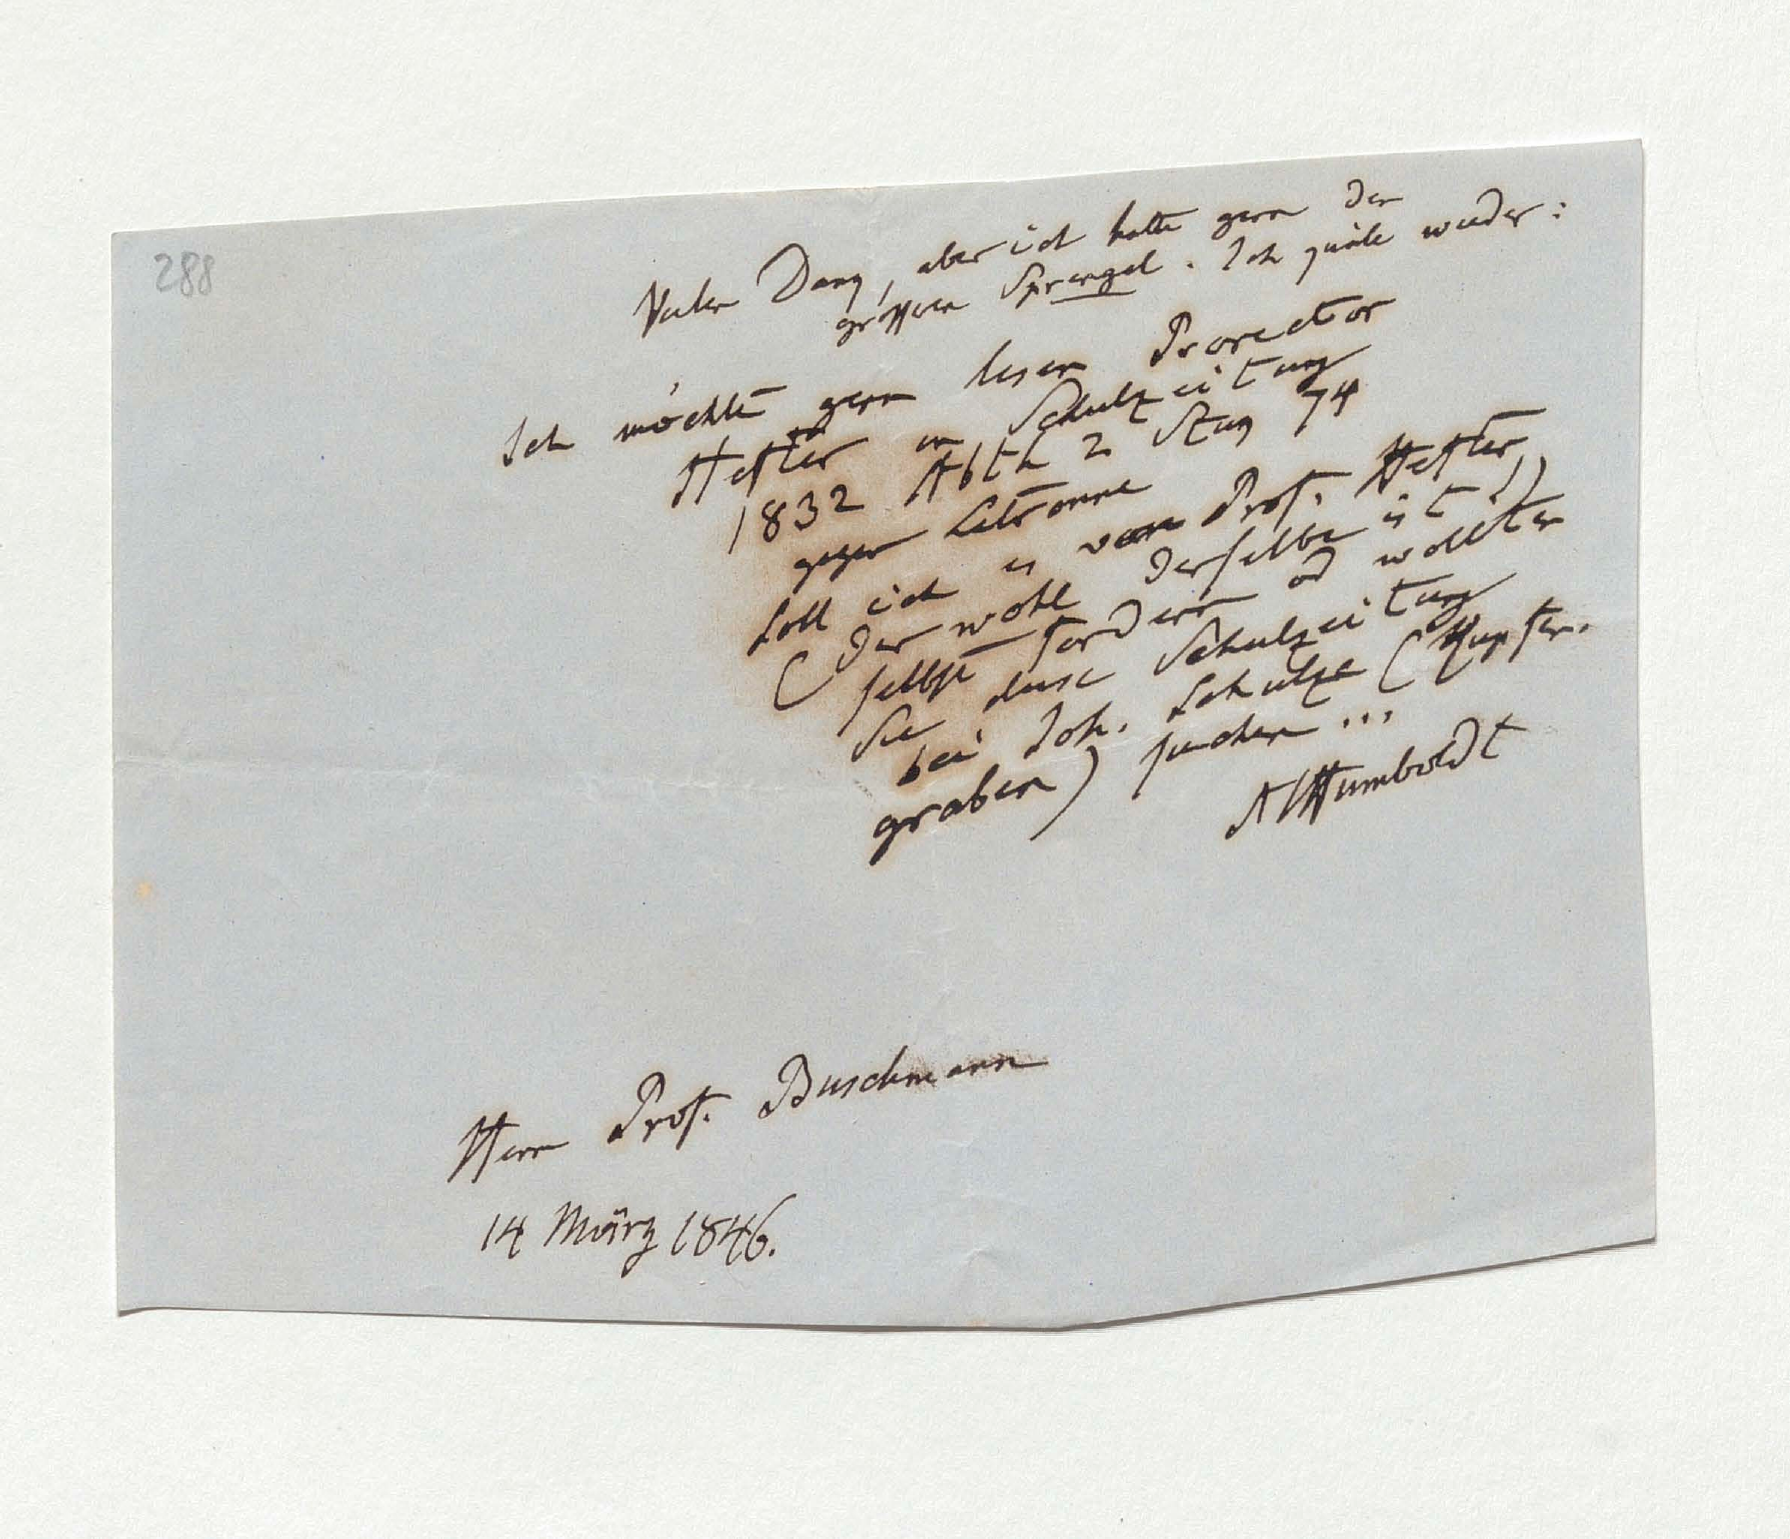 288
Vielen Dank, aber ich hätte gern den
grösseren Sprengel. Ich quäle wieder:
Ich möchte gern lesen Prorector
Heffter in Schulzeitung
1832 Abth 2 74
gegen Letronne
Soll ich es von Prof. Heffter
(der wohl derselbe ist!)
selbst fordern od wollten
Sie diese Schulzeitung
bei Joh. Schulze (Kupfer-
graben) suchen ...
AlHumboldt
Herrn Prof. Buschmann
14 März 1846.